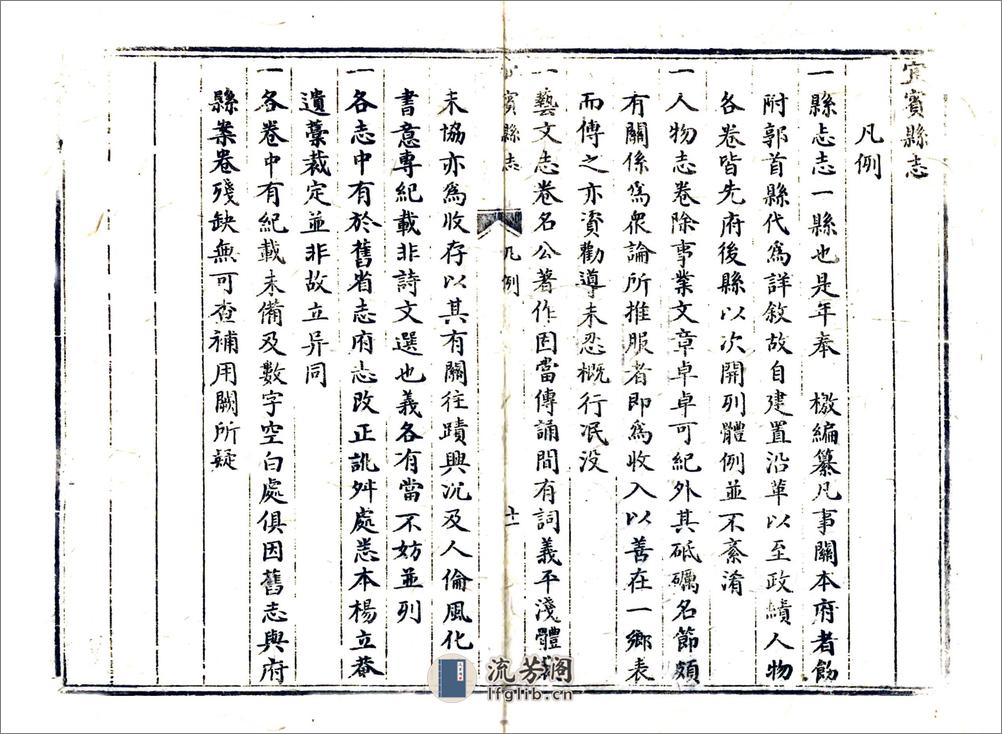 宜賓縣志
凡例
一縣志志一縣也是年奉　檄編纂凡事關本府者飭
附郭首縣代為詳敘故自建置沿革以至政績人物
各卷皆先府後縣以次開列體例並不紊淆
一人物志卷除事業文章卓卓可紀外其砥礪名節頗
有關係為衆論所推服者即為收入以善在一鄉表
而傳之亦資勸導未忍概行冺没
一藝文志卷名公著作固當傳誦間有詞義平淺體
賓縣志
凡例
十一
未協亦為收存以其有關往蹟興况及人倫風化
書意專紀載非詩文選也義各有當不妨並列
一各志中有於舊省志府志改正訛舛處悉本楊立菴
遺藁裁定並非故立异同
一各卷中有紀載未備及數字空白處俱因舊志與府
縣案卷殘缺無可查補用闕所疑
流芳閣
lfglib.cn